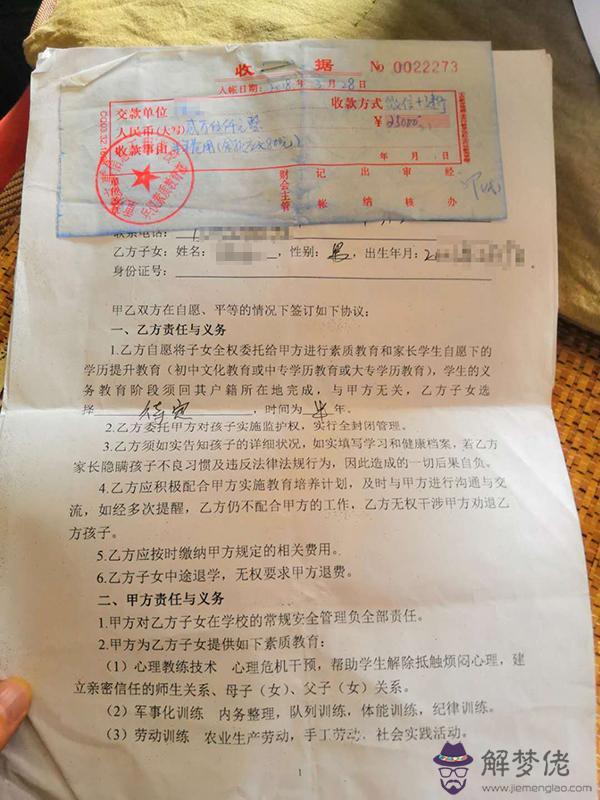 收 据 No 0022273
入帐日期: 2018 年 3 月 28 日
交款单位 收款方式 微信+银行
人民币(大写) 贰万伍仟元整 ¥25000
收款事由
年 月 日
财会主管 记帐 出纳 审核 经办
联系电话:
乙方子女: 姓名: ，性别: 男，出生年月: 2
身份证号:
甲乙双方在自愿、平等的情况下签订如下协议:
一、乙方责任与义务
1.乙方自愿将子女全权委托给甲方进行素质教育和家长学生自愿下的
学历提升教育（初中文化教育或中专学历教育或大专学历教育），学生的义
务教育阶段须回其户籍所在地完成，与甲方无关，乙方子女选
择 待定 ，时间为 半 年。
2.乙方委托甲方对孩子实施监护权，实行全封闭管理。
3.乙方须如实告知孩子的详细状况，如实填写学习和健康档案，若乙方
家长隐瞒孩子不良习惯及违反法律法规行为，因此造成的一切后果自负。
4.乙方应积极配合甲方实施教育培养计划，及时与甲方进行沟通与交
流，如经多次提醒，乙方仍不配合甲方的工作，乙方无权干涉甲方劝退乙
方孩子。
5.乙方应按时缴纳甲方规定的相关费用。
6.乙方子女中途退学，无权要求甲方退费。
二、甲方责任与义务
1.甲方对乙方子女在学校的常规安全管理负全部责任。
2.甲方为乙方子女提供如下素质教育:
（1）心理教练技术 心理危机干预，帮助学生解除抵触烦闷心理，建
立亲密信任的师生关系、母子（女）、父子（女）关系。
（2）军事化训练 内务整理，队列训练，体能训练，纪律训练。
（3）劳动训练 农业生产劳动，手工劳动，社会实践活动。
1
解梦佬
www.jiemenglao.com